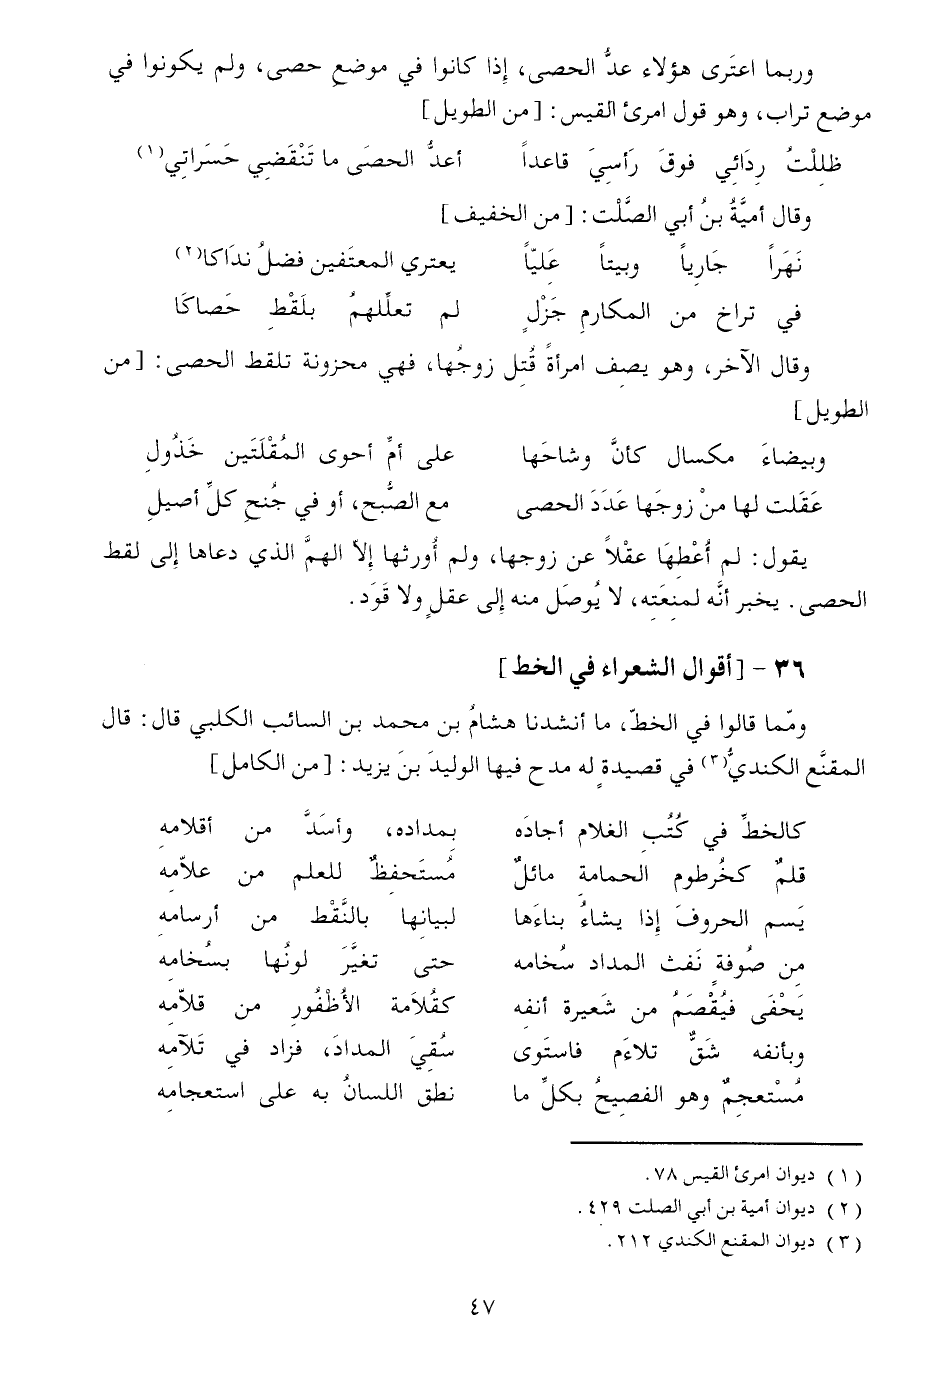 وربما اعتَرى هؤلاء عدُّ الحصى، إذا كانوا في موضعِ حصى، ولم يكونوا في
موضع تراب، وهو قول امرئ القيس: [من الطويل]
ظللْتُ رِدَائي فوقَ رَأسيَ قاعداً أعدُّ الحصَى ما تَنْقَضي حَسَراتي(١)
وقال أميَّةُ بنُ أبي الصَّلْت: [من الخفيف]
نَهَراً جَارياً وبيتاً عَليّاً يعتري المعتَفين فضلُ ندَاكا(٢)
في تراخٍ من المكارمِ جَزْلٍ لم تعلِّلهمُ بلَقْطِ حَصاكَا
وقال الآخر، وهو يصِف امرأةً قُتِل زوجُها، فهي محزونة تلقط الحصى: [من
الطويل]
وبيضاءَ مكسال كأنَّ وشاحَها على أمِّ أحوى المُقْلَتَين خَذُولِ
عَقَلت لها منْ زوجَها عَدَدَ الحصى مع الصُّبح، أو في جُنحِ كلِّ أصيلِ
يقول: لم أُعْطِهَا عقْلاً عن زوجها، ولم أُورثها إلاّ الهمَّ الذي دعاها إلى لقط
الحصى. يخبر أنَّه لمنعَتِه، لا يُوصَل منه إلى عقلٍ ولا قَوَد.
٣٦ - [أقوال الشعراء في الخط]
ومّما قالوا في الخطّ، ما أنشدنا هشامُ بن محمد بن السائب الكلبي قال: قال
المقنَّع الكنديُّ(٣) في قصيدةٍ له مدح فيها الوليدَ بنَ يزيد: [من الكامل]
كالخطِّ في كُتُبِ الغلام أجادَه بمداده، وأسَدَّ من أقلامِه
قلمٌ كخُرطوم الحمامة مائلٌ مُستَحفِظٌ للعلم من علاّمه
يَسم الحروفَ إذا يشاءُ بناءَها لبيانها بالنَّقْط من أرسامه
من صُوفةٍ نَفث المداد سُخامه حتى تغيَّرَ لونُها بسُخامه
يَحْفَى فيُقْصَمُ من شَعيرة أنفه كقُلاَمة الأُظْفُورِ من قلاّمه
وبأنفه شَقٌّ تلاءَم فاستَوى سُقيَ المدادَ، فزاد في تَلآمه
مُسْتعجمٌ وهو الفصيحُ بكلِّ ما نطق اللسانُ به على استعجامه
(١) ديوان امرئ القيس ٧٨.
(٢) ديوان أمية بن أبي الصلت ٤٢٩.
(٣) ديوان المقنع الكندي ٢١٢.
٤٧